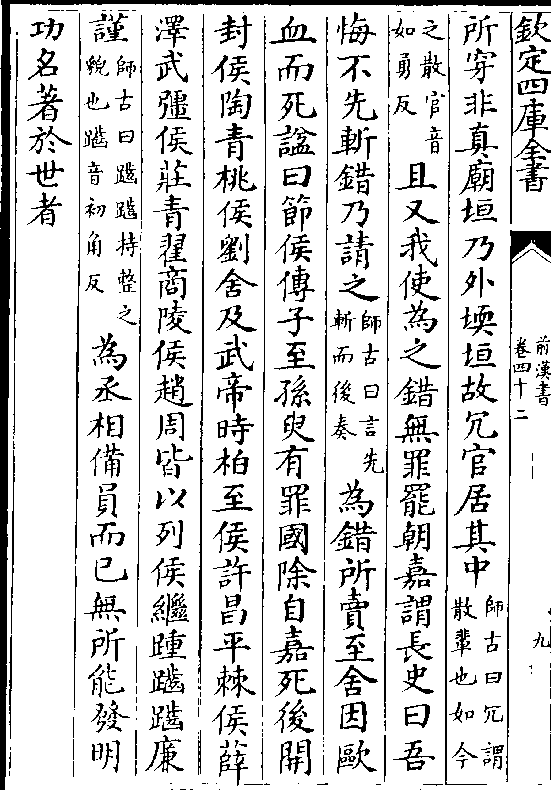 欽定四庫全書
前漢書
卷四十二
九
所穿非真廟垣乃外堧垣故冗官居其中師古曰冗謂散軰也如今
之散官音如勇反且又我使為之錯無罪罷朝嘉謂長史曰吾
悔不先斬錯乃請之師古曰言先斬而後奏為錯所賣至舍因歐
血而死諡曰節侯傳子至孫臾有罪國除自嘉死後開
封侯陶青桃侯劉舍及武帝時柏至侯許昌平棘侯薛
澤武彊侯莊青翟商陵侯趙周皆以列侯繼踵躖躖廉
謹師古曰躖躖持整之貌也躖音初角反為丞相備員而已無所能發明
功名著於世者